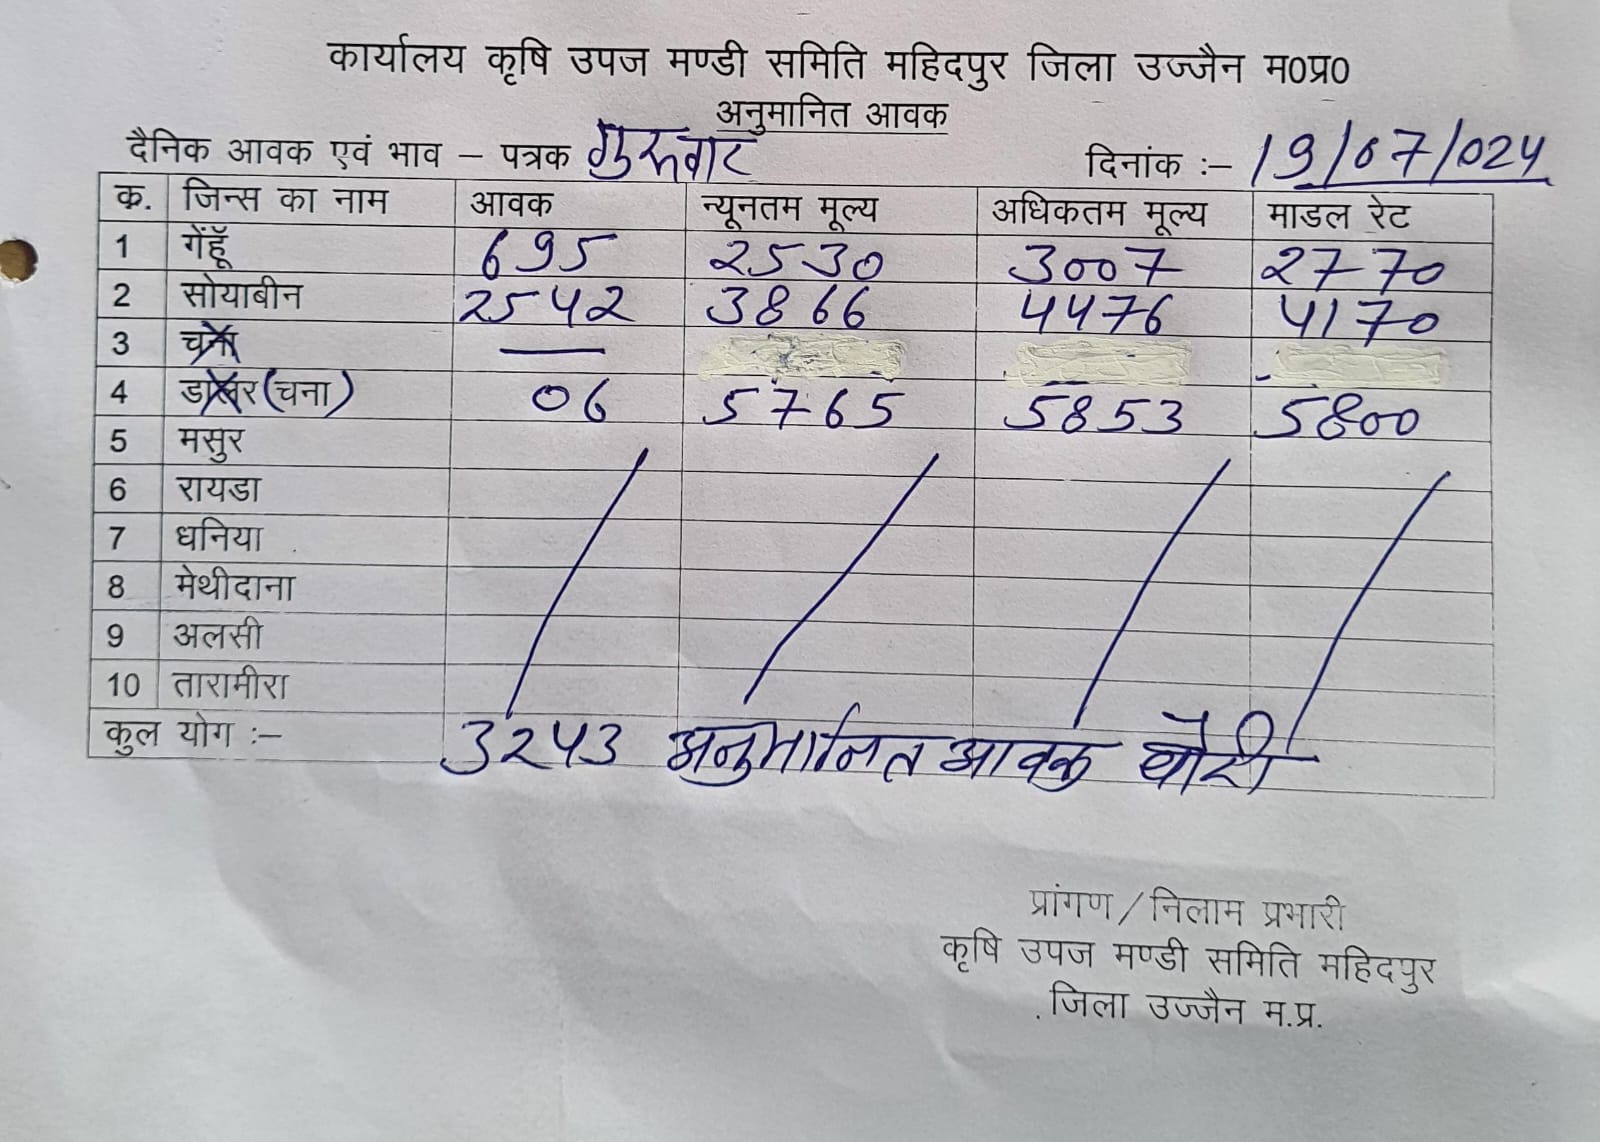 कार्यालय कृषि उपज मण्डी समिति महिदपुर जिला उज्जैन म0प्र0
अनुमानित आवक
दैनिक आवक एवं भाव – पत्रक गुरूवार दिनांक :– 19/07/024
क. जिन्स का नाम आवक न्यूनतम मूल्य अधिकतम मूल्य माडल रेट
1 गेंहूॅ 695 2530 3007 2770
2 सोयाबीन 2542 3866 4476 4170
3 चना —
4 डालर (चना) 06 5765 5853 5800
5 मसुर
6 रायडा
7 धनिया
8 मेथीदाना
9 अलसी
10 तारामीरा
कुल योग :– 3243 अनुमानित आवक बोरी
प्रांगण / निलाम प्रभारी
कृषि उपज मण्डी समिति महिदपुर
जिला उज्जैन म.प्र.